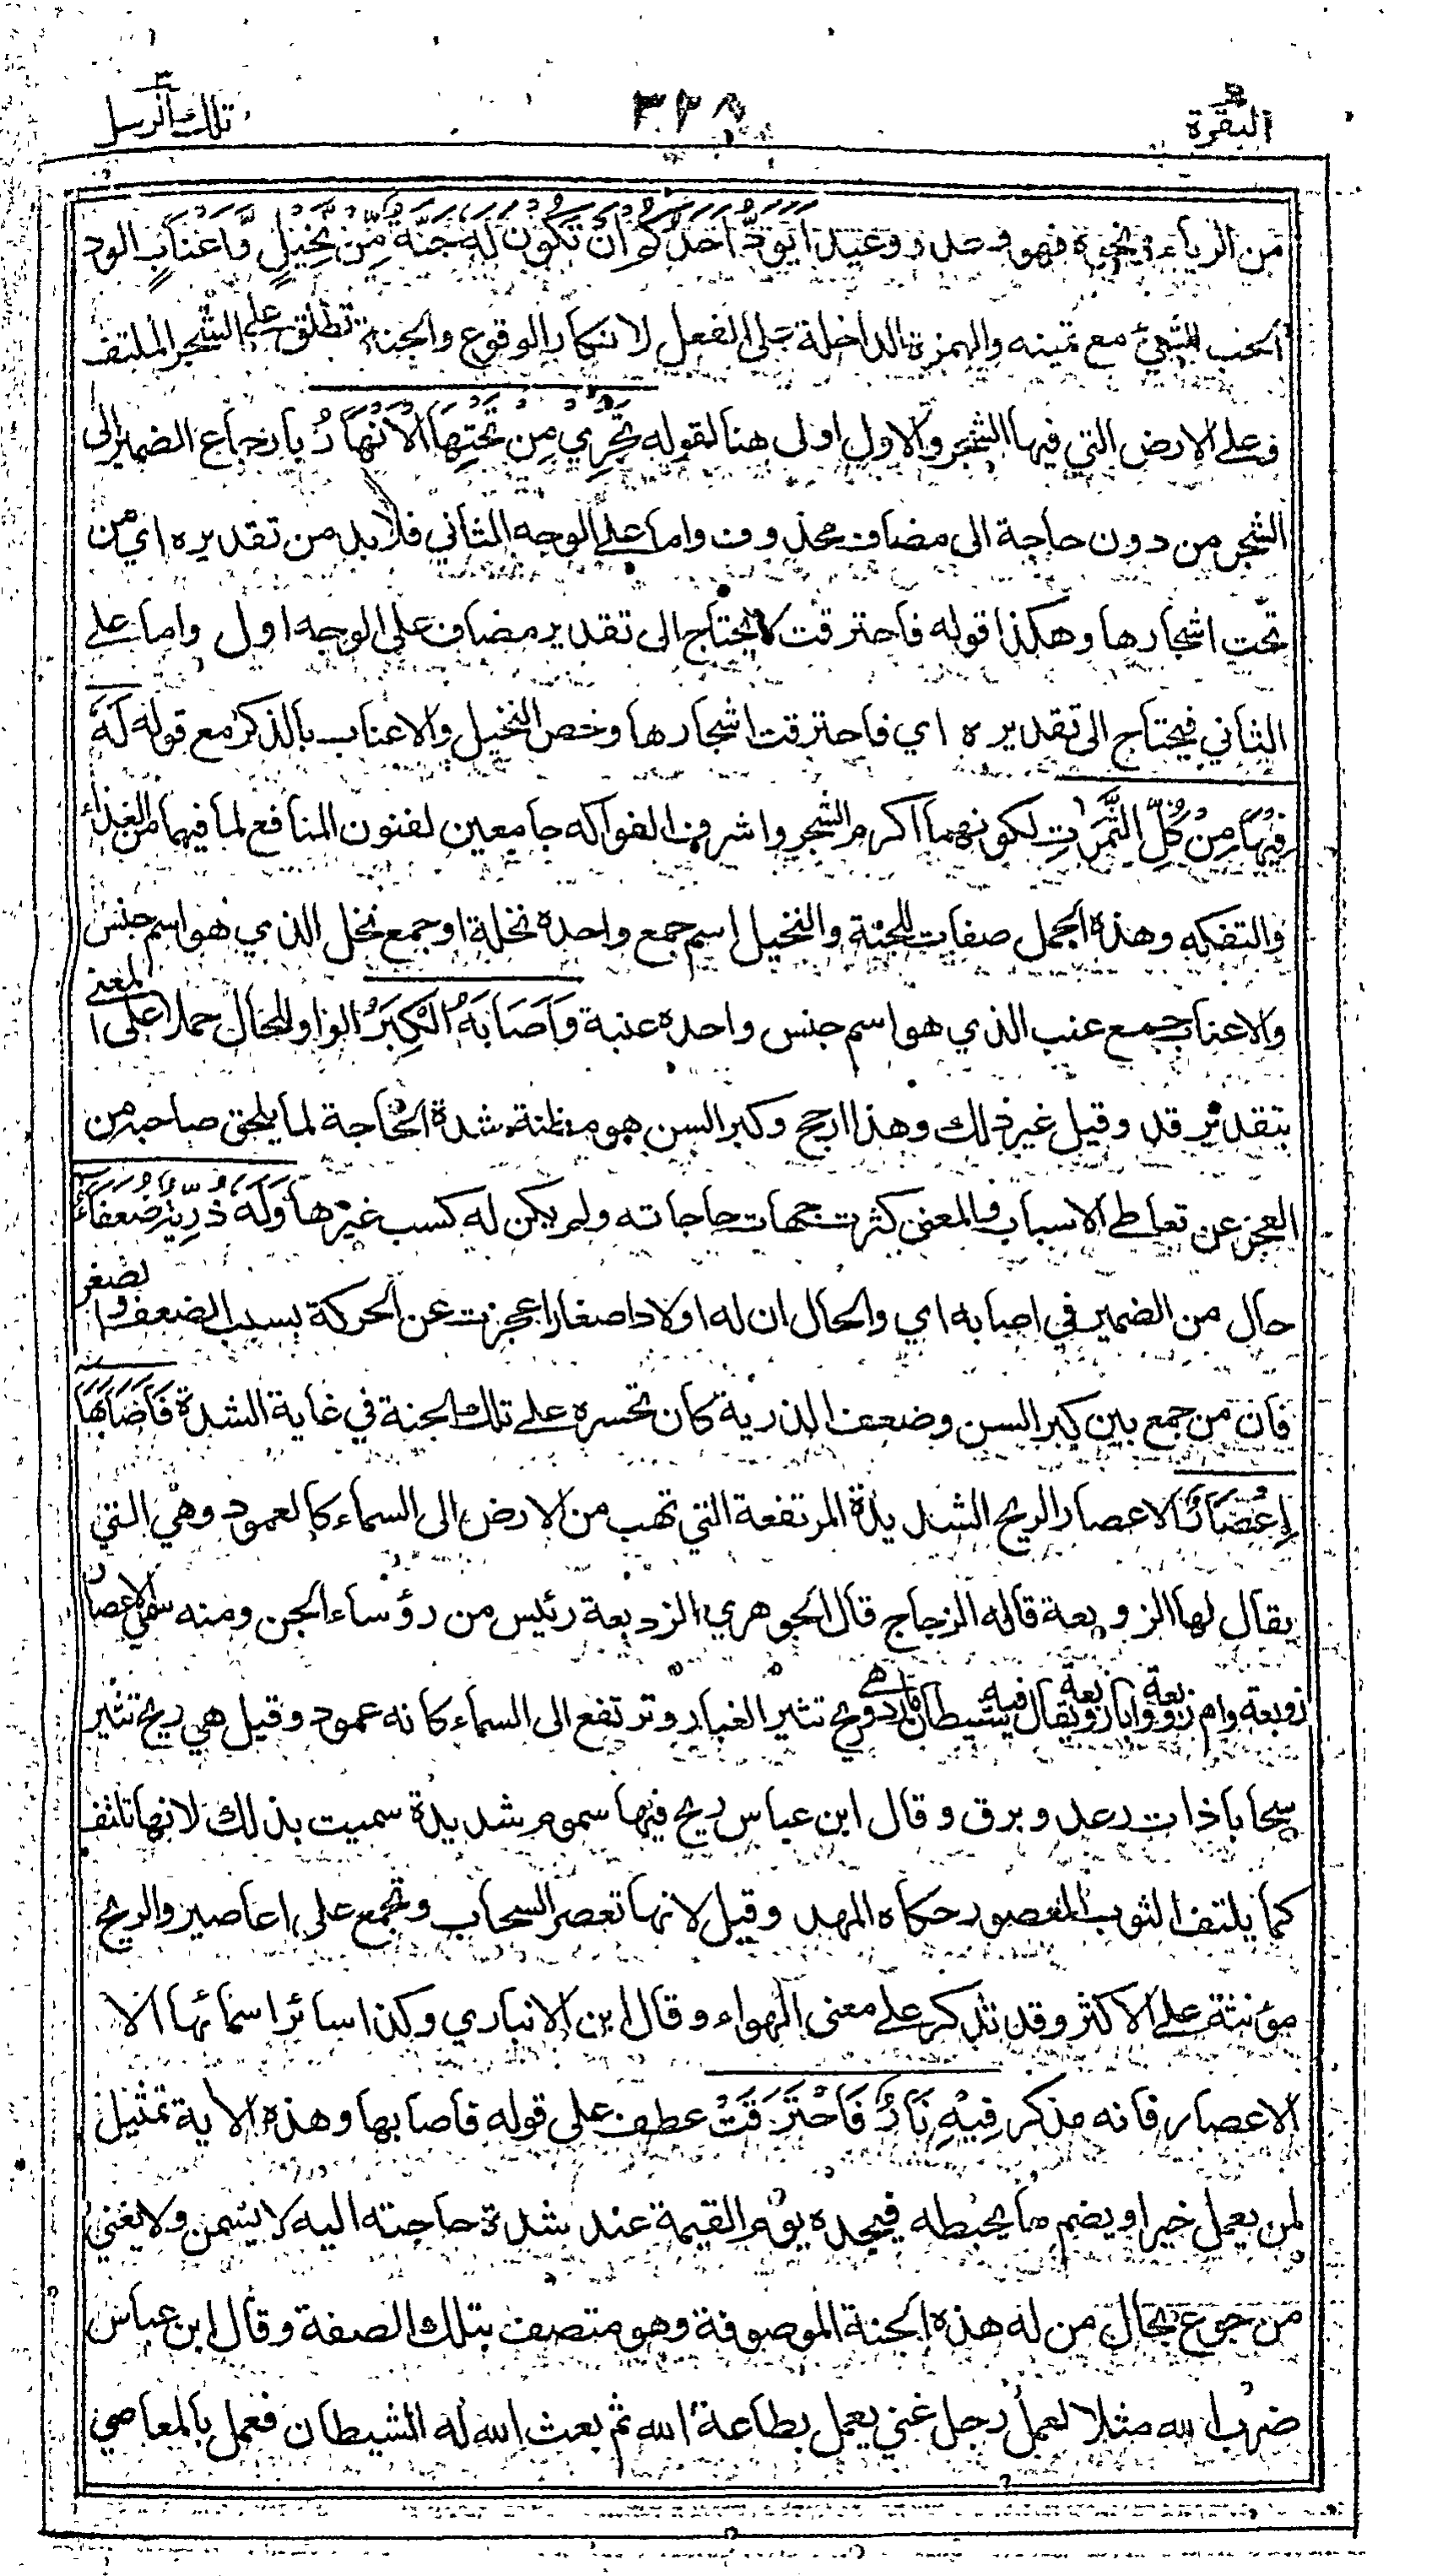 البقرة
٣٢٨
تلك الرسل ٣
من الرياء ونحوه فهو وعد ووعيد اَيَوَدُّ اَحَدُكُمْ اَنْ تَكُوْنَ لَهٗ جَنَّةٌ مِّنْ نَّخِيْلٍ وَّاَعْنَابٍ الود
الحب للشيء مع تمنيه والهمزة الداخلة على الفعل لانكار الوقوع والجنة تطلق على الشجر الملتف
وعلى الارض التي فيها الشجر والاول اولى هنا لقوله تَجْرِي مِنْ تَحْتِهَا الْاَنْهَارُ بارجاع الضمير الى
الشجر من دون حاجة الى مضاف محذوف واما على الوجه الثاني فلابد من تقديره اي من
تحت اشجارها وهكذا قوله فاحترقت لا يحتاج الى تقدير مضاف على الوجه اول واما على
الثاني فيحتاج الى تقديره اي فاحترقت اشجارها وخص النخيل والاعناب بالذكر مع قوله لَهٗ
فِيْهَا مِنْ كُلِّ الثَّمَرٰتِ لكونهما اكرم الشجر واشرف الفواكه جامعين لفنون المنافع لما فيهما من الغذاء
والتفكه وهذه الجمل صفات للجنة والنخيل اسم جمع واحده نخلة او جمع نخل الذي هو اسم جنس
والاعناب جمع عنب الذي هو اسم جنس واحده عنبة وَاَصَابَهُ الْكِبَرُ الواو للحال حملا على المعنى
بتقدير قد وقيل غير ذلك وهذا ارجح وكبر السن هو مظنة شدة الحاجة لما يلحق صاحبه من
العجز عن تعاطي الاسباب والمعنى كثرت جهات حاجاته ولم يكن له كسب غيرها وَلَهٗ ذُرِّيَّةٌ ضُعَفَآءُ
حال من الضمير في اصابه اي والحال ان له اولادا صغارا عجزت عن الحركة بسبب الضعف والصغر
فان من جمع بين كبر السن وضعف الذرية كان تحسره على تلك الجنة في غاية الشدة فَاَصَابَهَا
اِعْصَارٌ الاعصار الريح الشديدة المرتفعة التي تهب من الارض الى السماء كالعمود وهي التي
يقال لها الزوبعة قاله الزجاج قال الجوهري الزوبعة رئيس من رؤساء الجن ومنه سمي الاعصار
زوبعة وام زوبعة وابا زوبعة يقال فيه شيطان مارد وهي ريح تثير الغبار وترتفع الى السماء كانه عمود وقيل هي ريح تثير
سحابا ذات رعد وبرق وقال ابن عباس ريح فيها سموم شديدة سميت بذلك لانها تلتف
كما يلتف الثوب المعصور حكاه المهد وقيل لانها تعصر السحاب وتجمع على اعاصير والريح
مؤنثة على الاكثر وقد تذكر على معنى الهواء وقال ابن الانباري وكذا سائر اسمائها الا
الاعصار فانه مذكر فِيْهِ نَارٌ فَاحْتَرَقَتْ عطف على قوله فاصابها وهذه الاية تمثيل
لمن يعمل خيرا ويضم ما يحبطه فيجده يوم القيمة عند شدة حاجته اليه لا يسمن ولا يغني
من جوع بحال من له هذه الجنة الموصوفة وهو متصف بتلك الصفة وقال ابن عباس
ضرب الله مثلا لعمل رجل غني يعمل بطاعة الله ثم بعث الله له الشيطان فعمل بالمعاصي